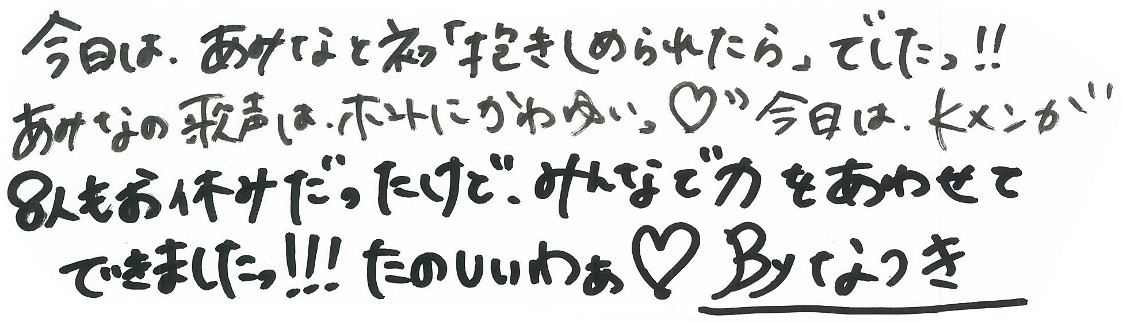 今日は、あみなと初「抱きしめられたら」でしたっ!!
あみなの歌声は、ホントにかわゆいっ♡” 今日は、Kメンが
8人もお休みだったけど、みんなで力をあわせて
できましたっ!!! たのしいわぁ♡ Byなつき